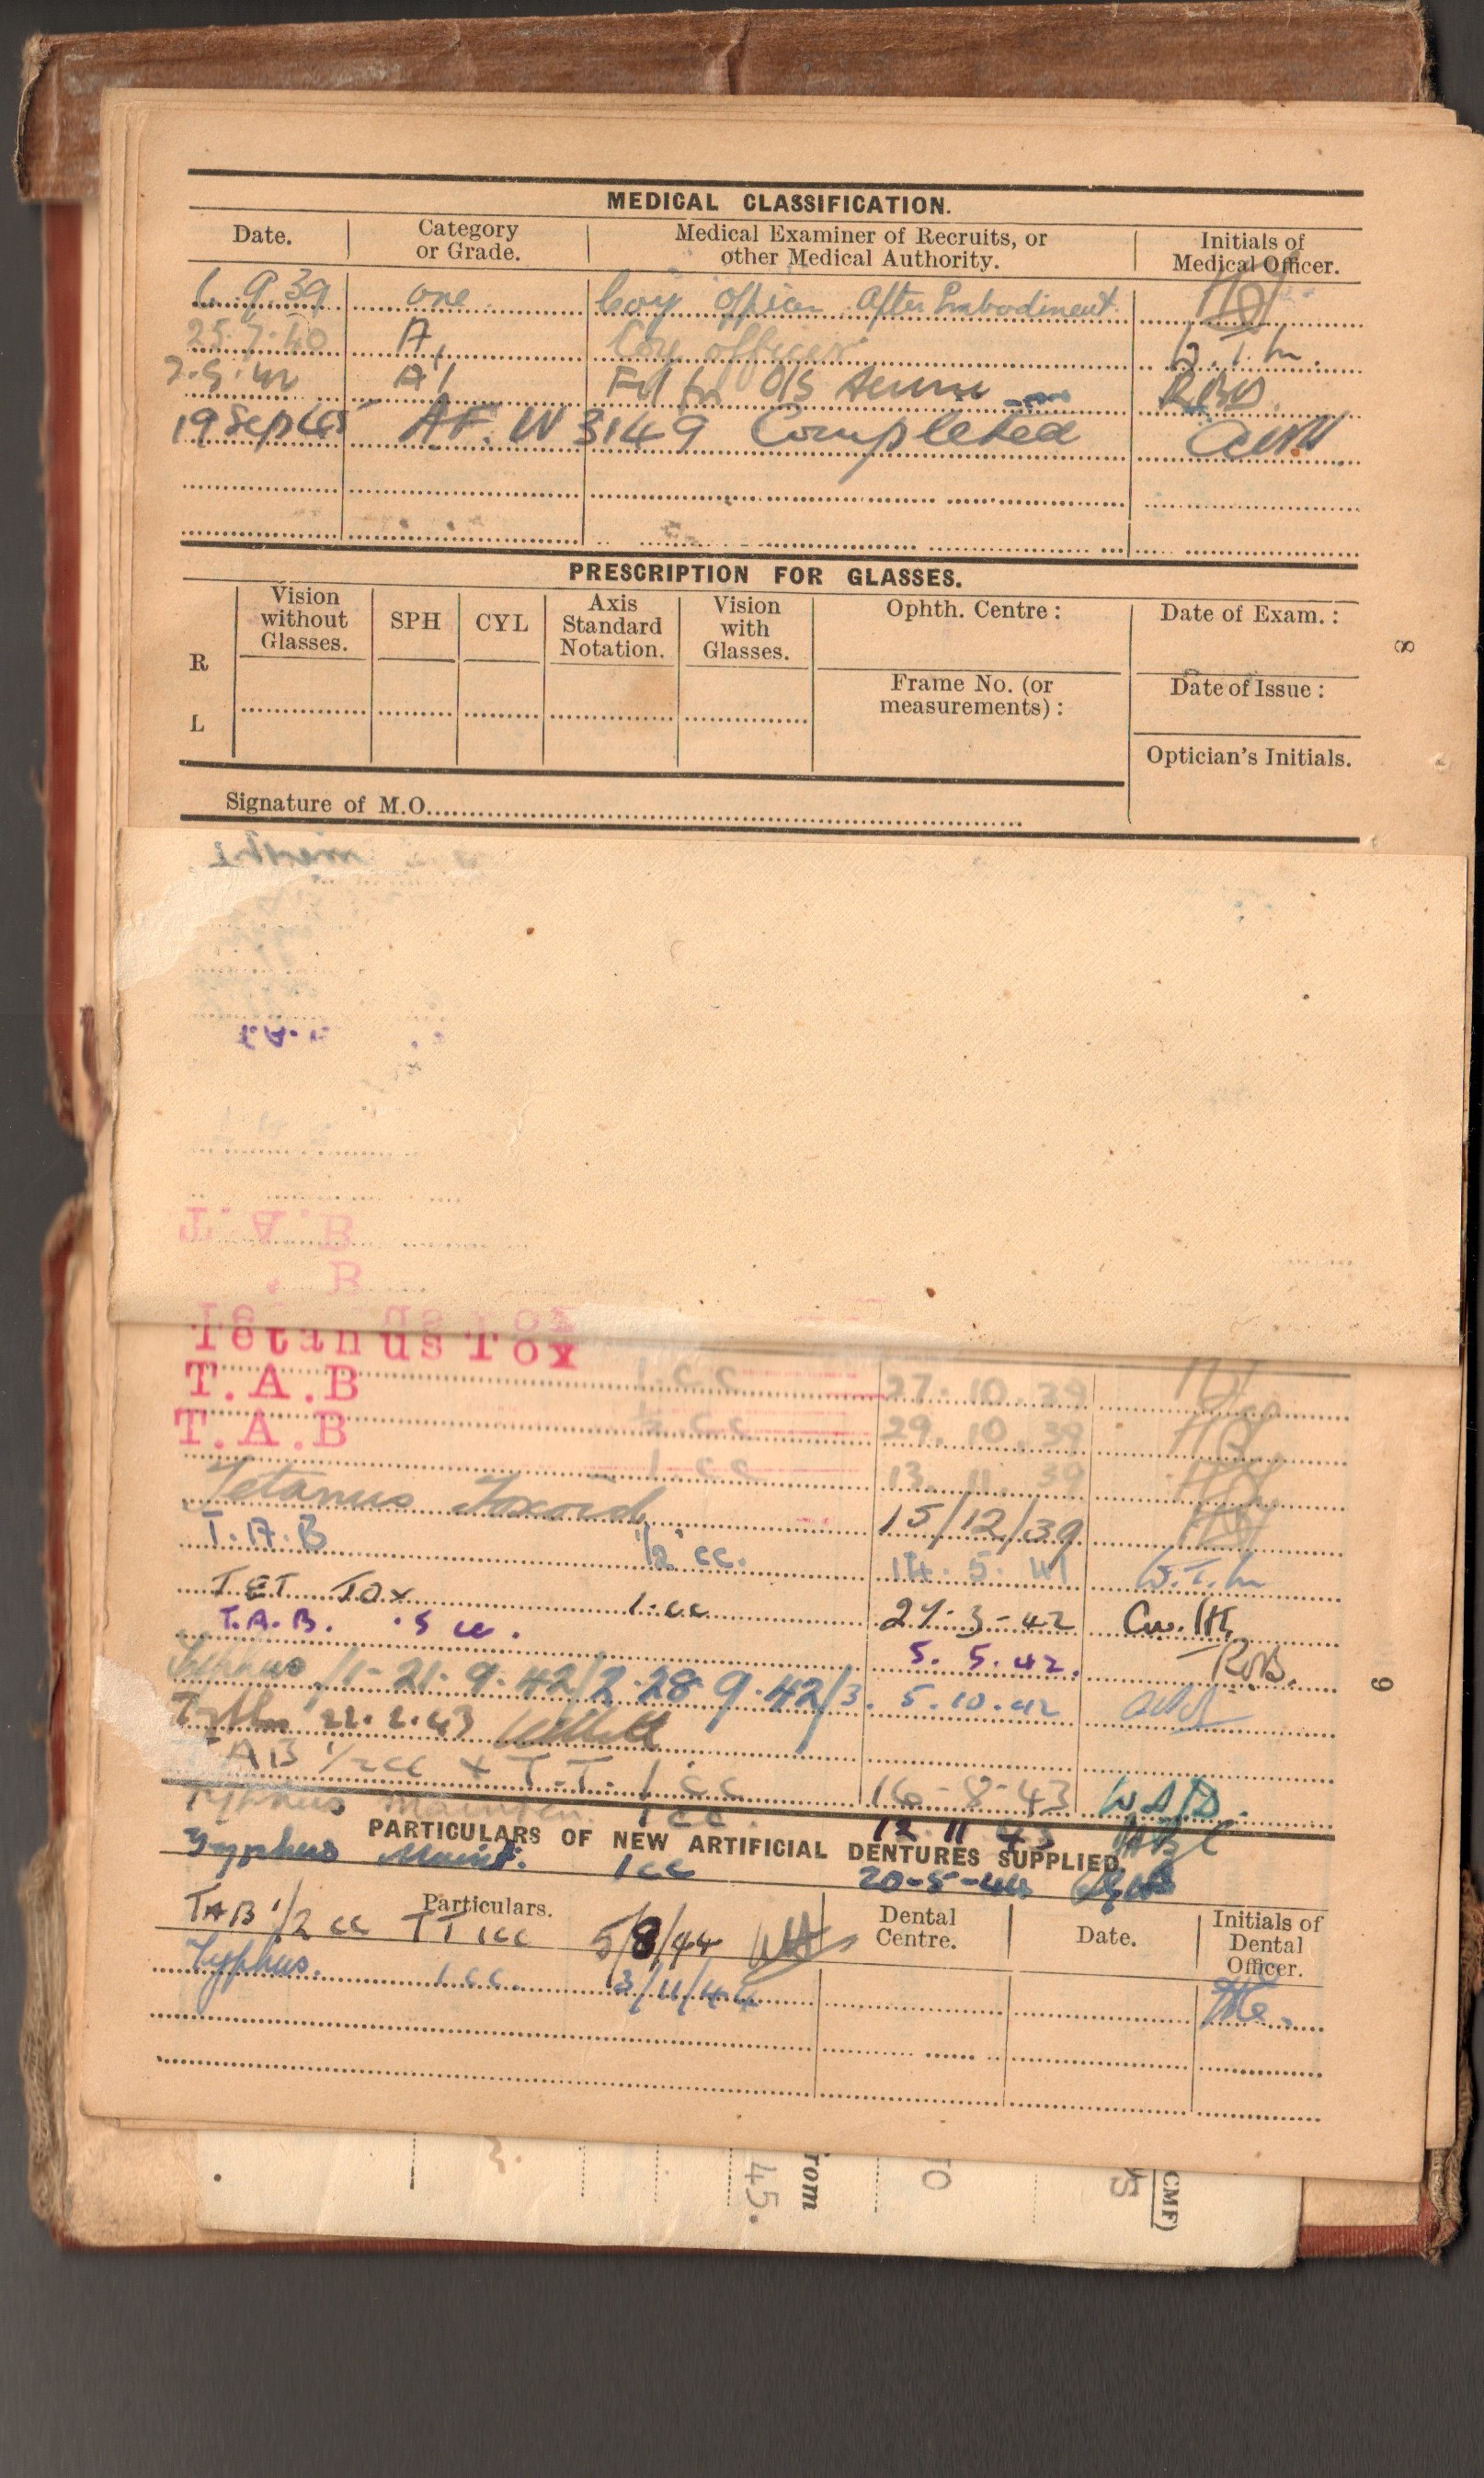 MEDICAL CLASSIFICATION.
Date. Category or Grade. Medical Examiner of Recruits, or other Medical Authority. Initials of Medical Officer.
1.9.39 one Coy officer After Embodiment
25.7.40 A1 Coy officer W.T.M.
7.5.42 A1 Fit for O/S RBD.
19 Sep 45 AF. W 3149 Completed
PRESCRIPTION FOR GLASSES.
Vision without Glasses. SPH CYL Axis Standard Notation. Vision with Glasses. Ophth. Centre : Date of Exam. :
R
Frame No. (or measurements) : Date of Issue :
L
Optician's Initials.
Signature of M.O.
8
T.A.B
B
Tetanus Tox 1.cc 27.10.39
T.A.B ½.cc 29.10.39
T.A.B 1.cc 13.11.39
Tetanus Toxoid 15/12/39
T.A.B 1/2 cc. 14.5.41 W.T.M
TET TOX 1.cc 27-3-42
T.A.B. .5 cc. 5.5.42.
Typhus /1-21.9.42/2.28.9.42/3. 5.10.42
22.2.43
TAB 1/2cc + T.T. 1 cc 16-8-43
Typhus Mainten 1cc. 12 11 43
PARTICULARS OF NEW ARTIFICIAL DENTURES SUPPLIED.
Typhus Maint. 1cc 20-5-44
Particulars. Dental Centre. Date. Initials of Dental Officer.
TAB 1/2 cc TT 1cc 5/8/44
Typhus. 1cc. 13/11/44
9
45.
rom
TO
CMF)